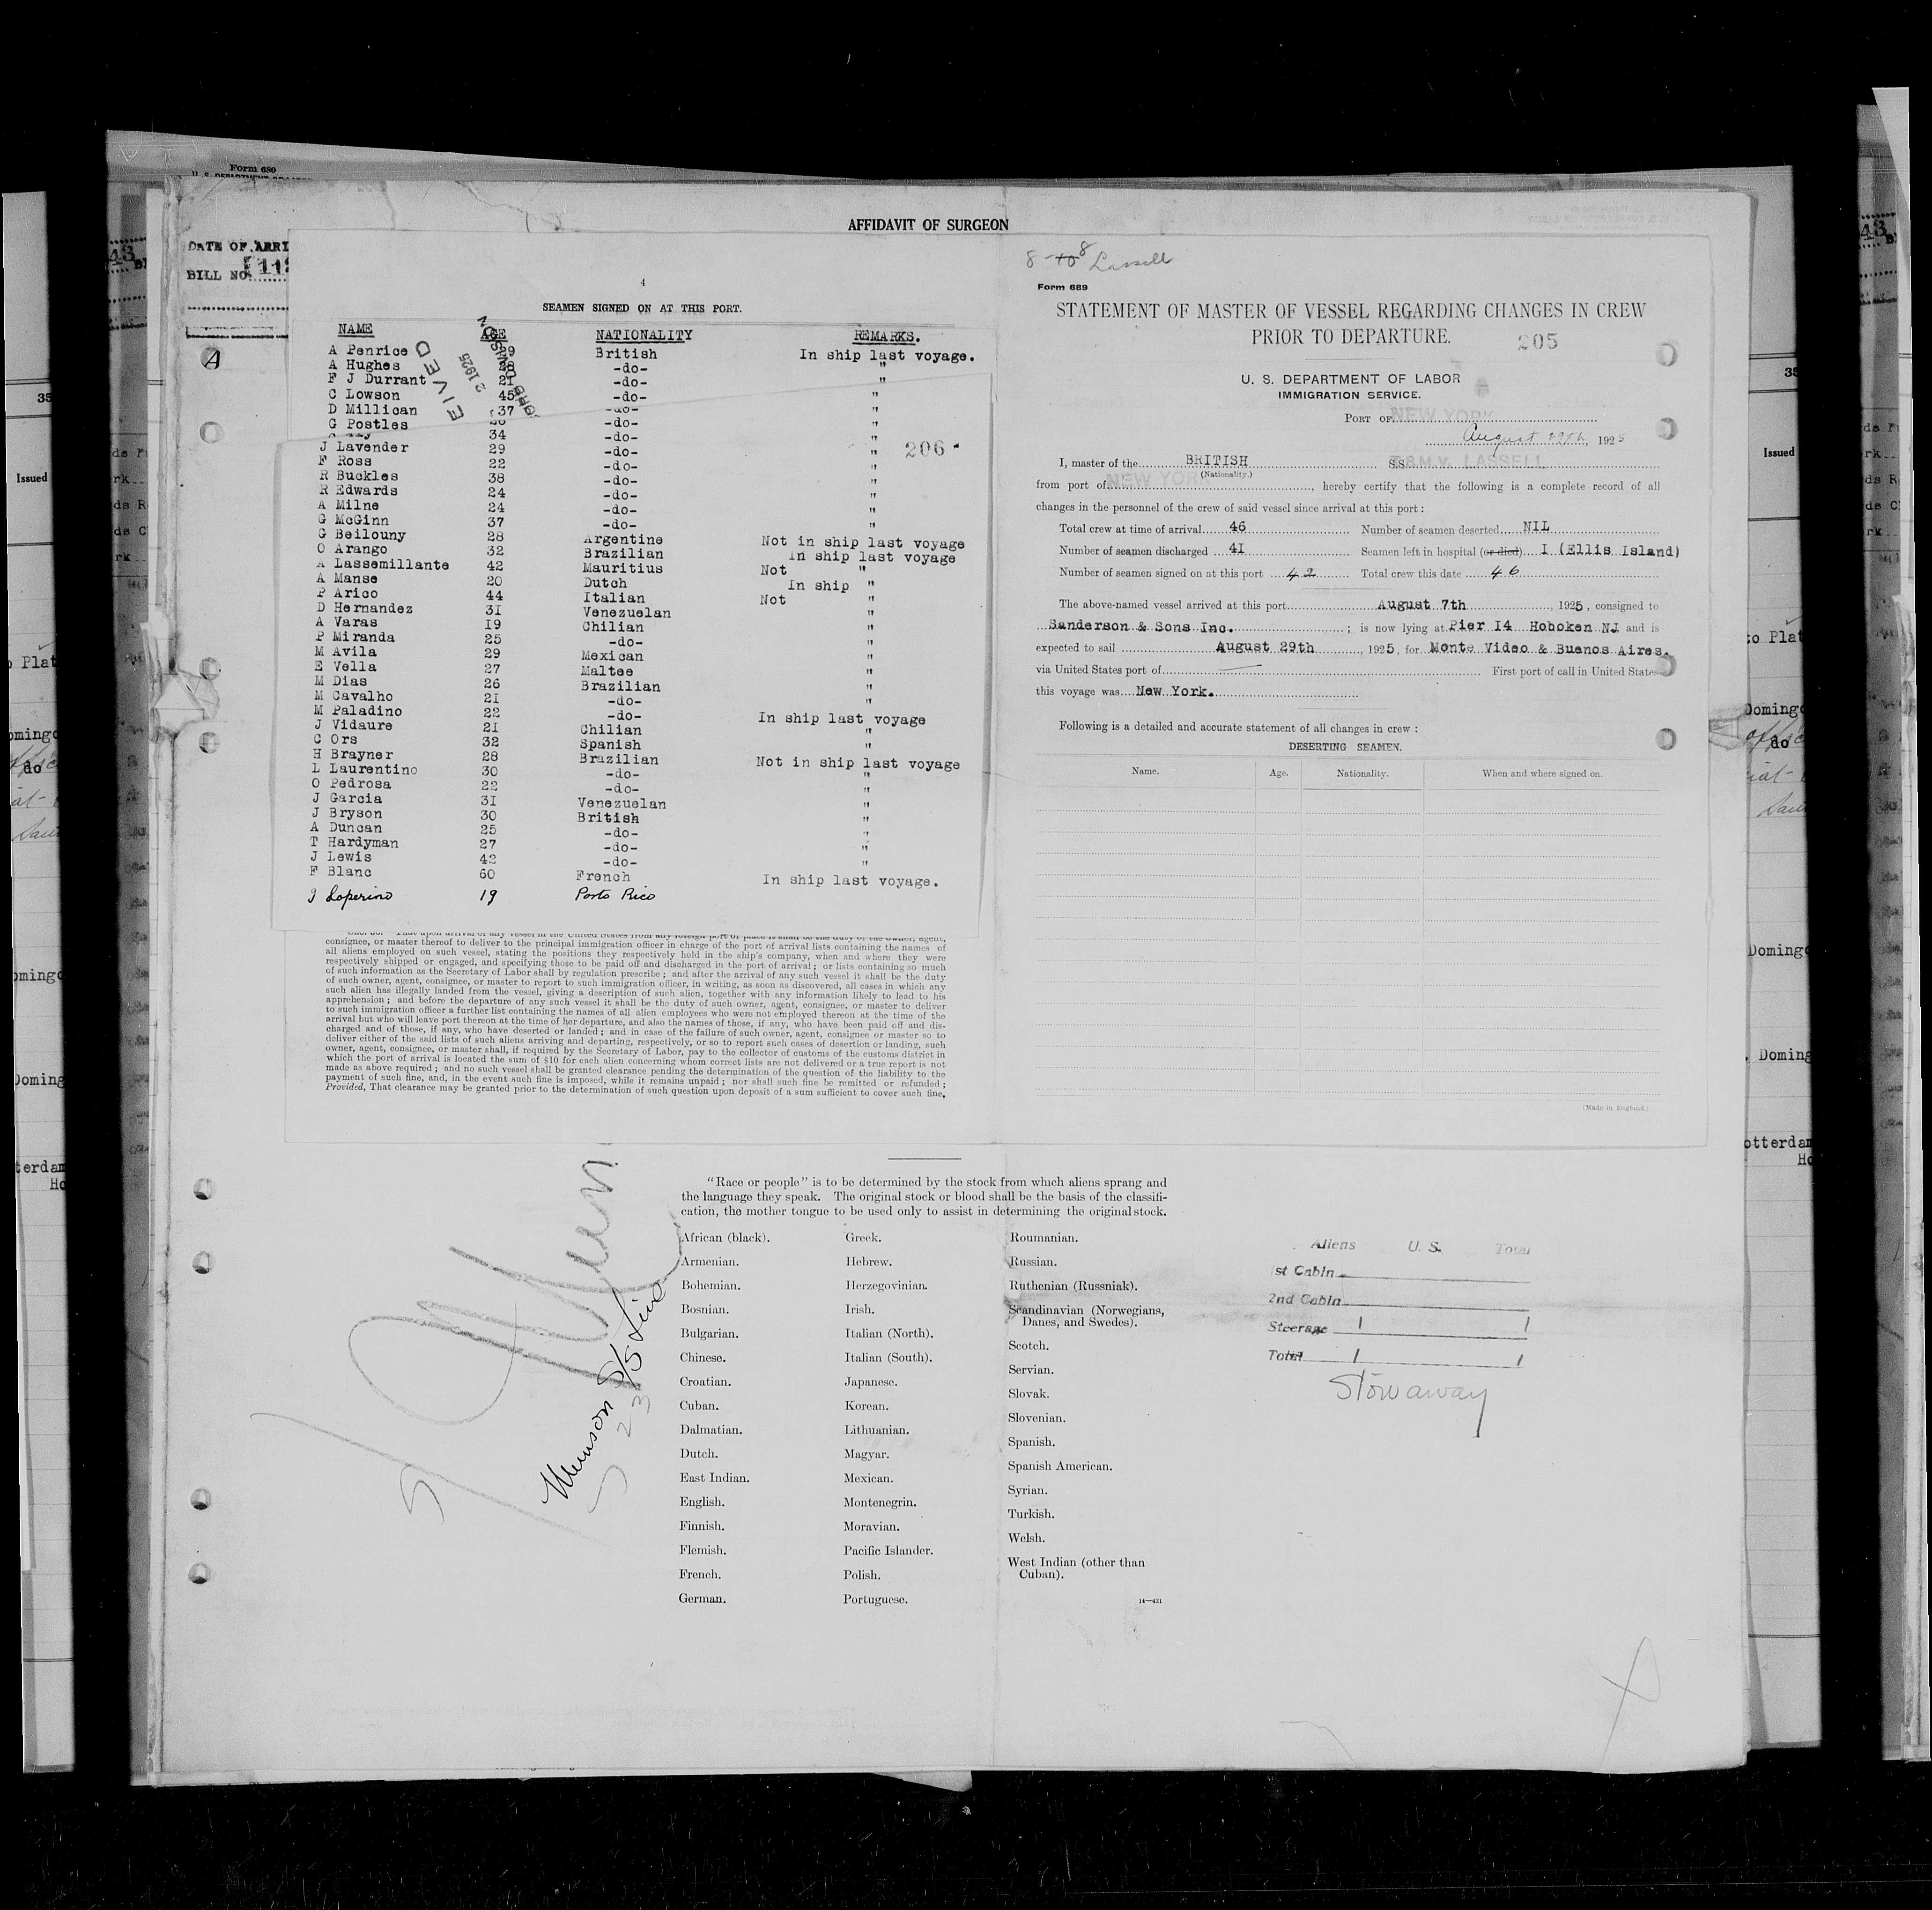 Form 680
AFFIDAVIT OF SURGEON
DATE OF ARRI
BILL NO.
4
SEAMEN SIGNED ON AT THIS PORT.
NAME AGE NATIONALITY REMARKS.
A Penrice 29 British In ship last voyage.
A Hughes 28 -do- "
F J Durrant 21 -do- "
C Lowson 45 -do- "
D Millican 37 -do- "
G Postles -do- "
34 -do- "
J Lavender 29 -do- " 206
F Ross 22 -do- "
R Buckles 38 -do- "
R Edwards 24 -do- "
A Milne 24 -do- "
G McGinn 37 -do- "
G Beilouny 28 Argentine Not in ship last voyage
O Arango 32 Brazilian In ship last voyage
A Lassemillante 42 Mauritius Not "
A Manse 20 Dutch In ship "
P Arico 44 Italian Not "
D Hernandez 31 Venezuelan "
A Varas 19 Chilian "
P Miranda 25 -do- "
M Avila 29 Mexican "
E Vella 27 Maltee "
M Dias 26 Brazilian "
M Cavalho 21 -do- "
M Paladino 22 -do- In ship last voyage
J Vidaure 21 Chilian "
C Ors 32 Spanish "
H Brayner 28 Brazilian Not in ship last voyage
L Laurentino 30 -do- "
O Pedrosa 22 -do- "
J Garcia 31 Venezuelan "
J Bryson 30 British "
A Duncan 25 -do- "
T Hardyman 27 -do- "
J Lewis 42 -do- "
F Blanc 60 French In ship last voyage.
J Loperino 19 Porto Rico
consignee, or master thereof to deliver to the principal immigration officer in charge of the port of arrival lists containing the names of
all aliens employed on such vessel, stating the positions they respectively hold in the ship's company, when and where they were
respectively shipped or engaged, and specifying those to be paid off and discharged in the port of arrival; or lists containing so much
of such information as the Secretary of Labor shall by regulation prescribe; and after the arrival of any such vessel it shall be the duty
of such owner, agent, consignee, or master to report to such immigration officer, in writing, as soon as discovered, all cases in which any
such alien has illegally landed from the vessel, giving a description of such alien, together with any information likely to lead to his
apprehension; and before the departure of any such vessel it shall be the duty of such owner, agent, consignee, or master to deliver
to such immigration officer a further list containing the names of all alien employees who were not employed thereon at the time of the
arrival but who will leave port thereon at the time of her departure, and also the names of those, if any, who have been paid off and dis-
charged and of those, if any, who have deserted or landed; and in case of the failure of such owner, agent, consignee or master so to
deliver either of the said lists of such aliens arriving and departing, respectively, or so to report such cases of desertion or landing, such
owner, agent, consignee, or master shall, if required by the Secretary of Labor, pay to the collector of customs of the customs district in
which the port of arrival is located the sum of $10 for each alien concerning whom correct lists are not delivered or a true report is not
made as above required; and no such vessel shall be granted clearance pending the determination of the question of the liability to the
payment of such fine, and, in the event such fine is imposed, while it remains unpaid; nor shall such fine be remitted or refunded;
Provided, That clearance may be granted prior to the determination of such question upon deposit of a sum sufficient to cover such fine,
8 Lassell
Form 689
STATEMENT OF MASTER OF VESSEL REGARDING CHANGES IN CREW
PRIOR TO DEPARTURE. 205
U. S. DEPARTMENT OF LABOR
IMMIGRATION SERVICE.
PORT OF NEW YORK
August 29th, 1925
I, master of the BRITISH SS T.S.M.V. LASSELL
(Nationality.)
from port of NEW YORK, hereby certify that the following is a complete record of all
changes in the personnel of the crew of said vessel since arrival at this port:
Total crew at time of arrival 46 Number of seamen deserted NIL
Number of seamen discharged 41 Seamen left in hospital (or died) I (Ellis Island)
Number of seamen signed on at this port 42 Total crew this date 46
The above-named vessel arrived at this port August 7th, 1925, consigned to
Sanderson & Sons Inc.; is now lying at Pier 14 Hoboken NJ and is
expected to sail August 29th, 1925, for Monte Video & Buenos Aires.
via United States port of First port of call in United States
this voyage was New York.
Following is a detailed and accurate statement of all changes in crew:
DESERTING SEAMEN.
Name. Age. Nationality. When and where signed on.
[Made in England.]
Munson S/S Line
23
"Race or people" is to be determined by the stock from which aliens sprang and
the language they speak. The original stock or blood shall be the basis of the classifi-
cation, the mother tongue to be used only to assist in determining the original stock.
African (black). Greek. Roumanian.
Armenian. Hebrew. Russian.
Bohemian. Herzegovinian. Ruthenian (Russniak).
Bosnian. Irish. Scandinavian (Norwegians,
Danes, and Swedes).
Bulgarian. Italian (North). Scotch.
Chinese. Italian (South). Servian.
Croatian. Japanese. Slovak.
Cuban. Korean. Slovenian.
Dalmatian. Lithuanian. Spanish.
Dutch. Magyar. Spanish American.
East Indian. Mexican. Syrian.
English. Montenegrin. Turkish.
Finnish. Moravian. Welsh.
Flemish. Pacific Islander. West Indian (other than
Cuban).
French. Polish.
German. Portuguese.
14—431
Aliens U. S. Total
1st Cabin
2nd Cabin
Steerage 1 1
Total 1 1
Stowaway